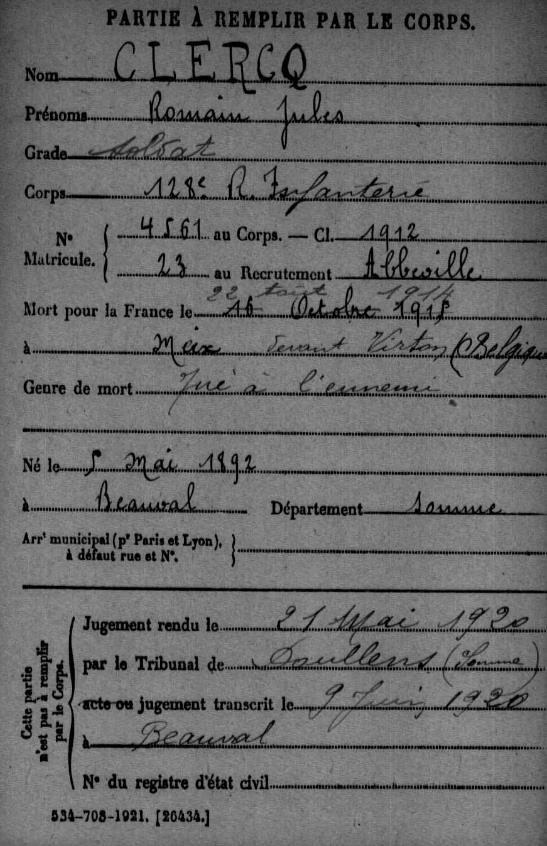 PARTIE À REMPLIR PAR LE CORPS.
Nom CLERCQ
Prénoms Romain Jules
Grade soldat
Corps 128e R. Infanterie
N° Matricule. { 4561 au Corps. — Cl. 1912
23 au Recrutement Abbeville
22 août 1914
Mort pour la France le 16 Octobre 1918
à Meix devant Virton (Belgique
Genre de mort Tué à l'ennemi
Né le 5 Mai 1892
à Beauval Département Somme
Arrt municipal (pr Paris et Lyon), }
à défaut rue et N°.
Cette partie n'est pas à remplir par le Corps.
Jugement rendu le 21 Mai 1920
par le Tribunal de Doullens (Somme)
acte ou jugement transcrit le 9 Juin 1920
à Beauval
N° du registre d'état civil
534-708-1921. [26434.]